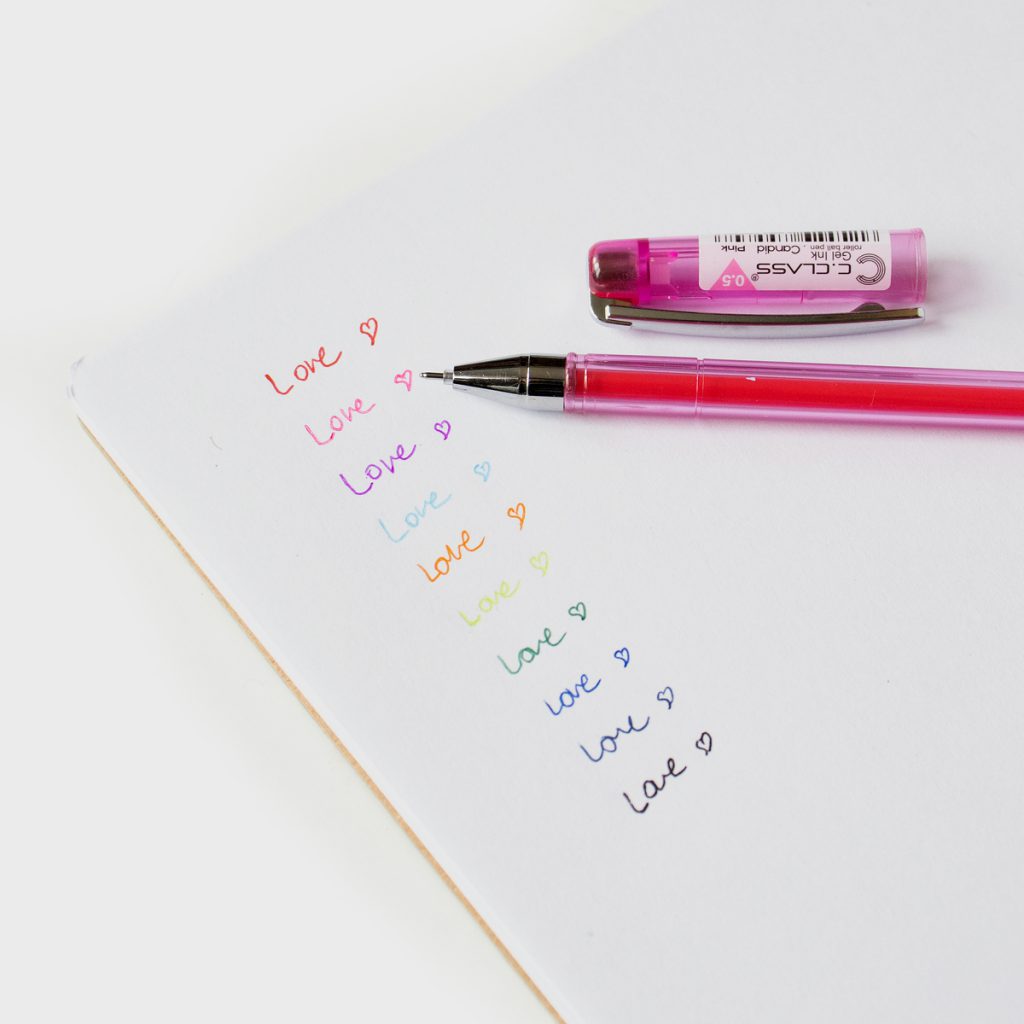 Love ♡
Love ♡
Love ♡
Love ♡
Love ♡
Love ♡
Love ♡
Love ♡
Love ♡
Love ♡
C.CLASS®
Gel Ink
roller ball pen . Candid Pink
0.5